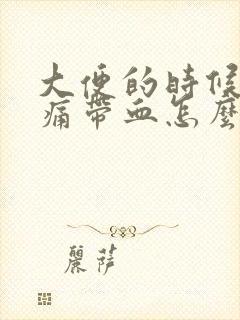 大便的時候
痛帶血怎麼
麗薩